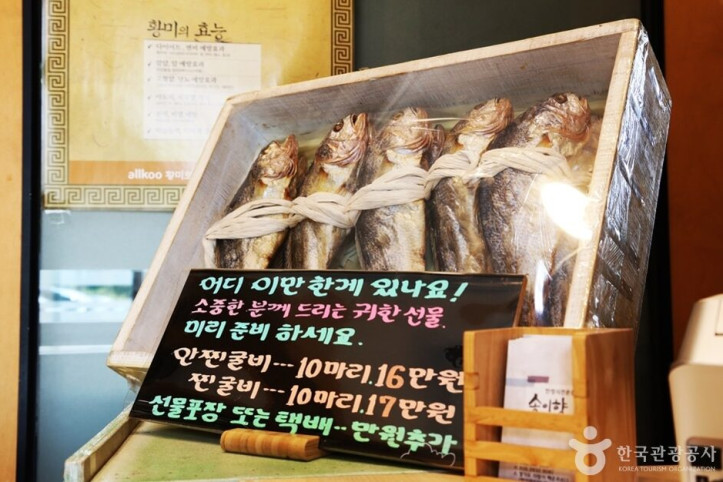 황미의 효능
allkoo 황미
어디 이만한게 있나요!
소중한 분께 드리는 귀한 선물.
미리 준비 하세요.
안찐굴비---10마리.16만원
찐굴비---10마리.17만원
선물포장 또는 택배--만원추가
송이향
한국관광공사
KOREA TOURISM ORGANIZATION